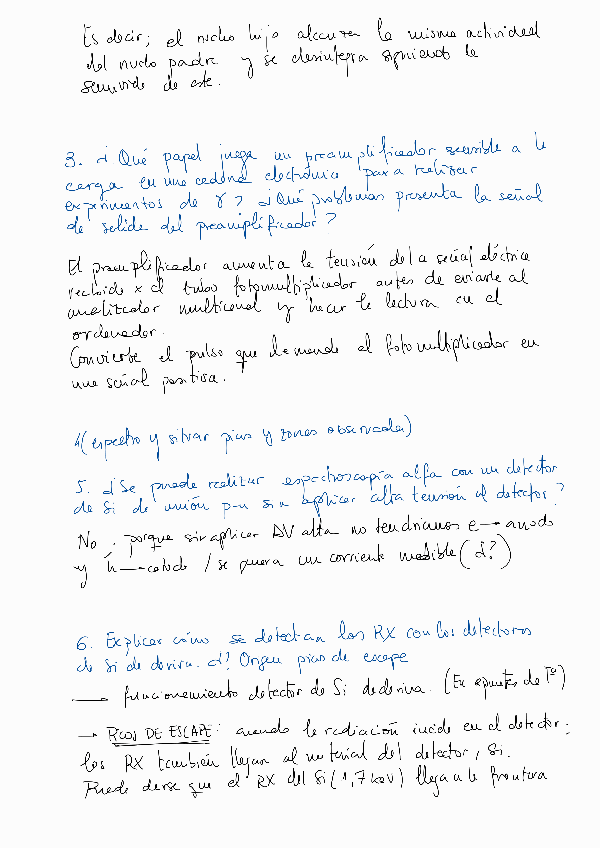 Es decir; el nucleo hijo alcanza la misma actividad
del nucleo padre y se desintegra siguiendo la
semivida de este.
3. ¿Qué papel juega un preamplificador sensible a la
carga en una cadena electrónica para realizar
experimentos de γ? ¿Qué problemas presenta la señal
de salida del preamplificador?
El preamplificador aumenta la tensión de la señal eléctrica
recibida x el tubo fotomultiplicador antes de enviarla al
analizador multicanal y hacer la lectura en el
ordenador.
Convierte el pulso que le manda el fotomultiplicador en
una señal positiva.
4(espectro y situar picos y zonas observadas)
5. ¿Se puede realizar espectroscopía alfa con un detector
de Si de unión p-n sin aplicar alta tensión al detector?
No, porque sin aplicar ΔV alta no tendríamos e→ anodo
y h→catodo / se genera un corriente medible (¿?)
6. Explicar cómo se detectan los RX con los detectores
de Si de deriva. ¿? Origen picos de escape
→ funcionamiento detector de Si de deriva. (En apuntes de Tª)
→ PICOS DE ESCAPE: cuando la radiación incide en el detector;
los RX también llegan al material del detector, Si.
Puede darse que el RX del Si (1,7 keV) llega a la frontera